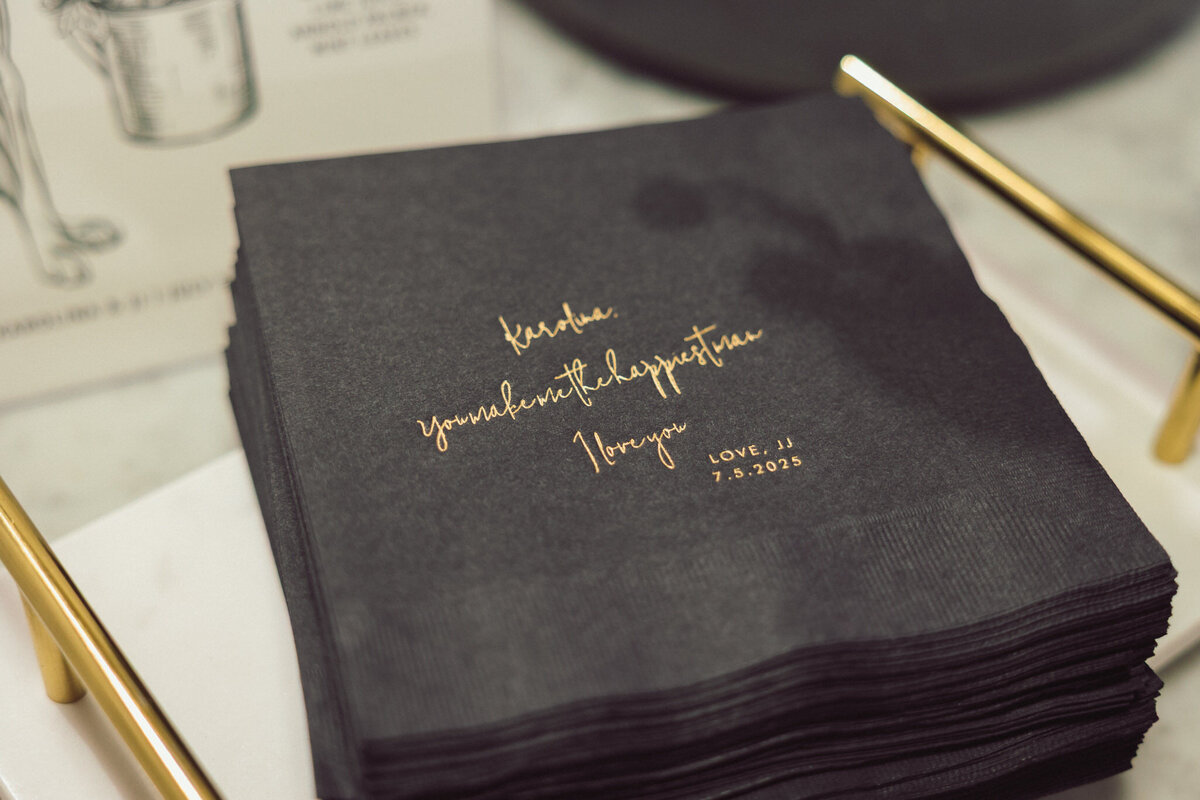 Karolina,
you make me the happiest man
I love you
LOVE, JJ
7.5.2025